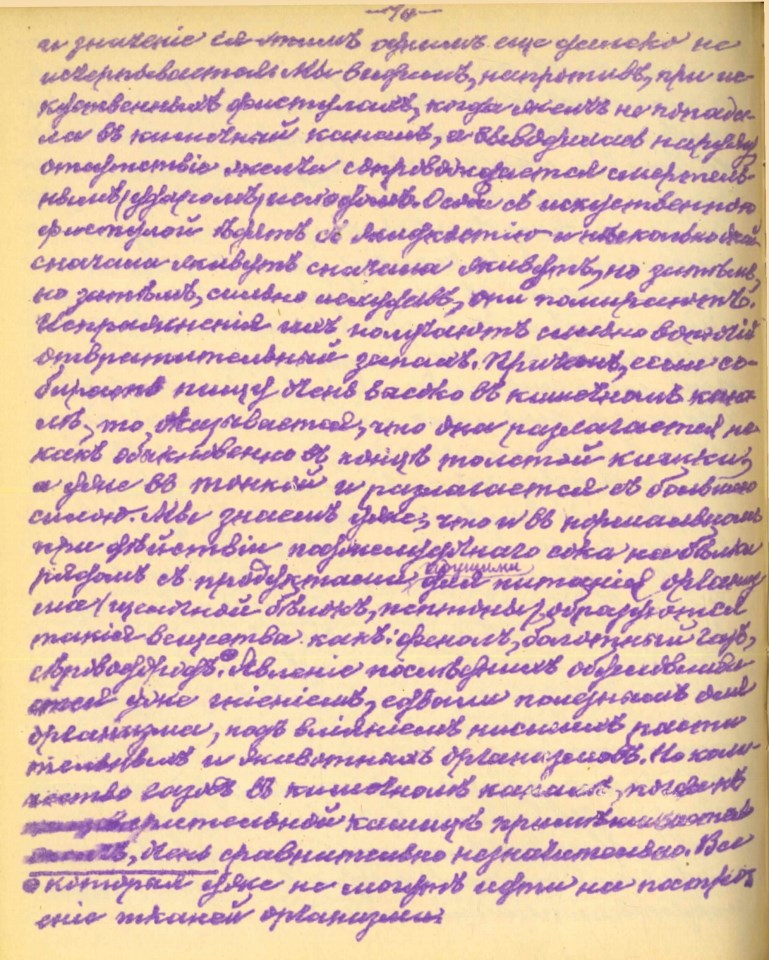 и значеніе ея этимъ однимъ еще далеко не
исчерпывается. Мы видимъ, напротивъ, при ис-
куственныхъ фистулахъ, когда желчь не попада-
ла въ кишечный каналъ, а выводилась наружу,
отсутствіе желчи сопровождается смертель-
нымъ исходомъ. Особи съ искуственною
фистулой ѣдятъ съ жадностію и нѣсколько дней
сначала живутъ сначала живутъ, но затѣмъ,
но затѣмъ, сильно исхудавъ, они помираютъ.
Испражненія ихъ получаютъ сильно вонючій
отвратительный запахъ. Причемъ, если со-
бирать пищу въ кишечномъ кана-
лѣ, то оказывается, что она разлагается не
какъ обыкновенно въ концѣ толстой кишки,
а уже въ тонкой и разлагается съ большею
силою. Мы знаемъ уже, что и въ нормальномъ
при дѣйствіи поджелудочнаго сока на бѣлки
рядомъ съ продуктами идущими для питанія организ
ма (щелочной бѣлокъ, пептоны) образуются
такія вещества какъ: фенолъ, болотный газъ,
сѣроводородъ. Явленіе послѣднихъ обусловлива
ется уже гніеніемъ, едвали полезнымъ для
организма, подъ вліяніемъ низшихъ расти
тельныхъ и животныхъ организмовъ. Но коли
чество газовъ въ кишечномъ каналѣ, когда къ
кашицѣ примѣшивается
желчь, сравнительно незначительно. Все
которая уже не могутъ идти на построе
ніе тканей организма.